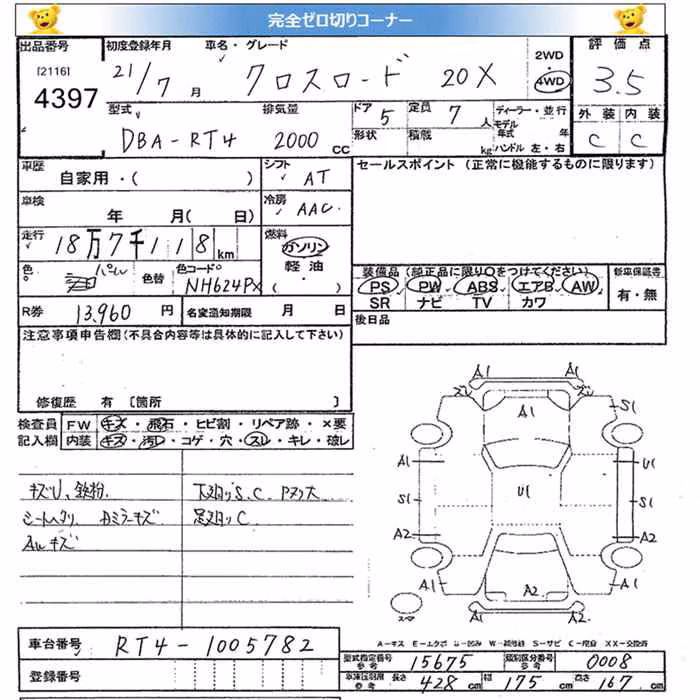 完全ゼロ切りコーナー
出品番号 初度登録年月 車名・グレード 評価点
[2116] 4397
21/7 月 クロスロード 20X 2WD・4WD 3.5
型式 排気量 ドア 5 定員 7 人 ディーラー・並行 外装 内装
DBA-RT4 2000 cc 形状 積載 kg モデル年式 年 ハンドル 左・右 C C
車歴 自家用・( ) シフト AT セールスポイント (正常に機能するものに限ります)
車検 年 月( 日) 冷房 AAC
走行 18万7千118km 燃料 ガソリン 軽油 ( ・ )
色 パール 色替 色コード NH624PX
装備品 (純正品に限り○をつけてください) 新車保証書
PS PW ABS エアB AW 有・無
SR ナビ TV カワ
R券 13,960 円 名変通知期限 月 日 後日品
注意事項申告欄(不具合内容等は具体的に記入して下さい)
修復歴 有 [箇所 ]
検査員記入欄 FW キズ・飛石・ヒビ割・リペア跡・×要
内装 キズ・汚レ・コゲ・穴・スレ・キレ・破レ
キズU、鉄粉 下廻りS.C.
シートヘタリ ミラーキズ 足廻りC
AWキズ
A1 A1
A1 S1
A1 U1
S1 U1 S1
A2 A2
A1 A2 A1
A2 A2
スペア
A-キズ E-エクボ U-凹み W-補修跡 S-サビ C-腐食 XX-交換済
車台番号 RT4-1005782
型式指定番号 参考 15675 類別区分番号 参考 0008
登録番号
参考 長さ 428 cm 幅 175 cm 高さ 167 cm